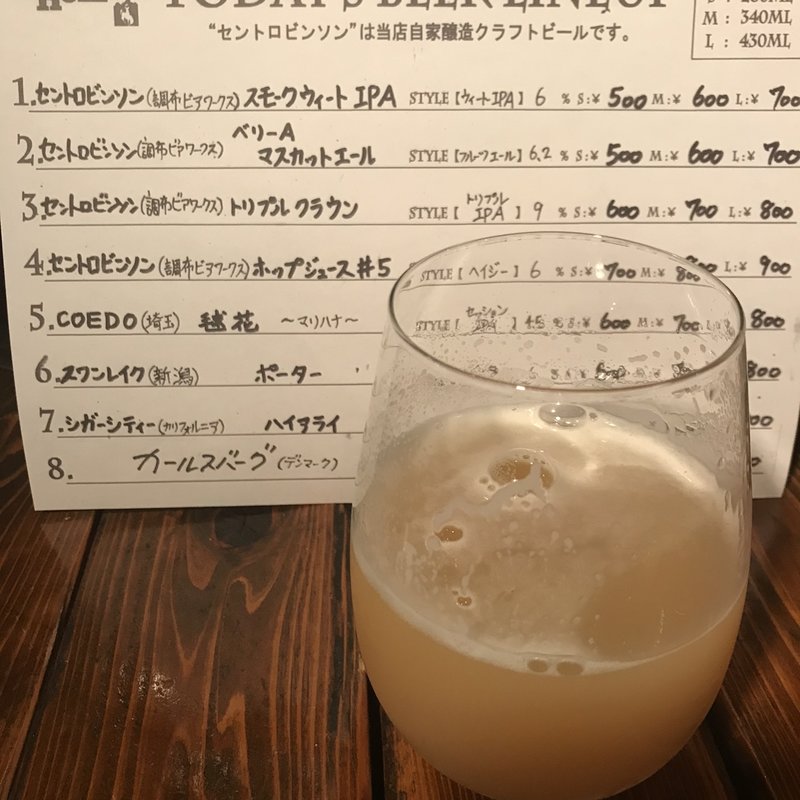 TODAY'S BEER LINE UP
"セントロビンソン"は当店自家醸造クラフトビールです。
M : 340ML
L : 430ML
1.セントロビンソン(調布ビアワークス) スモークウィート IPA STYLE【ウィートIPA】6 % S:¥ 500 M:¥ 600 L:¥ 700
2.セントロビンソン(調布ビアワークス) ベリーA マスカットエール STYLE【フルーツエール】6.2 % S:¥ 500 M:¥ 600 L:¥ 700
3.セントロビンソン(調布ビアワークス) トリプルクラウン STYLE【トリプルIPA】9 % S:¥ 600 M:¥ 700 L:¥ 800
4.セントロビンソン(調布ビアワークス) ホップジュース#5 STYLE【ヘイジー】6 % S:¥ 700 M:¥ 800 L:¥ 900
5.COEDO(埼玉) 毬花 ～マリハナ～ STYLE【セッションIPA】4.5 % S:¥ 600 M:¥ 700 L:¥ 800
6.スワンレイク(新潟) ポーター 800
7.シガーシティー(カリフォルニア) ハイアライ
8. カールスバーグ(デンマーク)